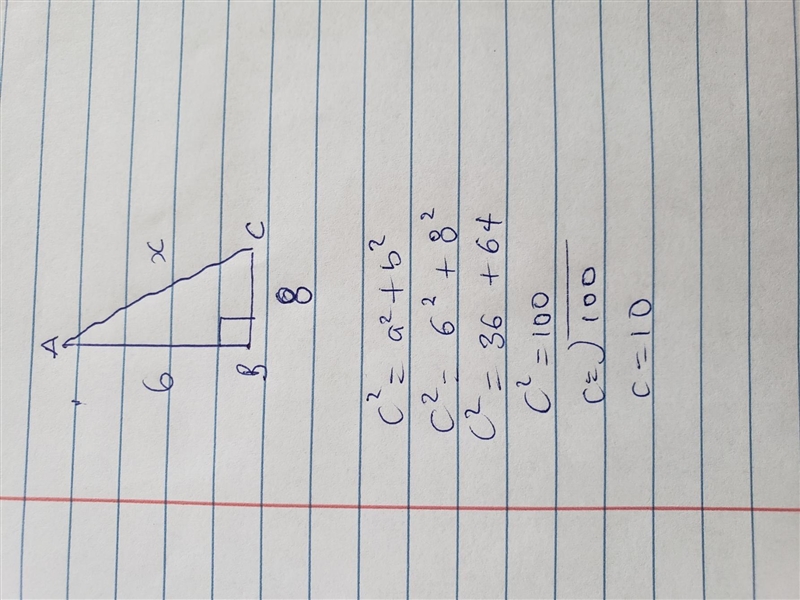 A
6
x
B
C
8
c² = a² + b²
c² - 6² + 8²
c² = 36 + 64
c² = 100
c = √100
c = 10